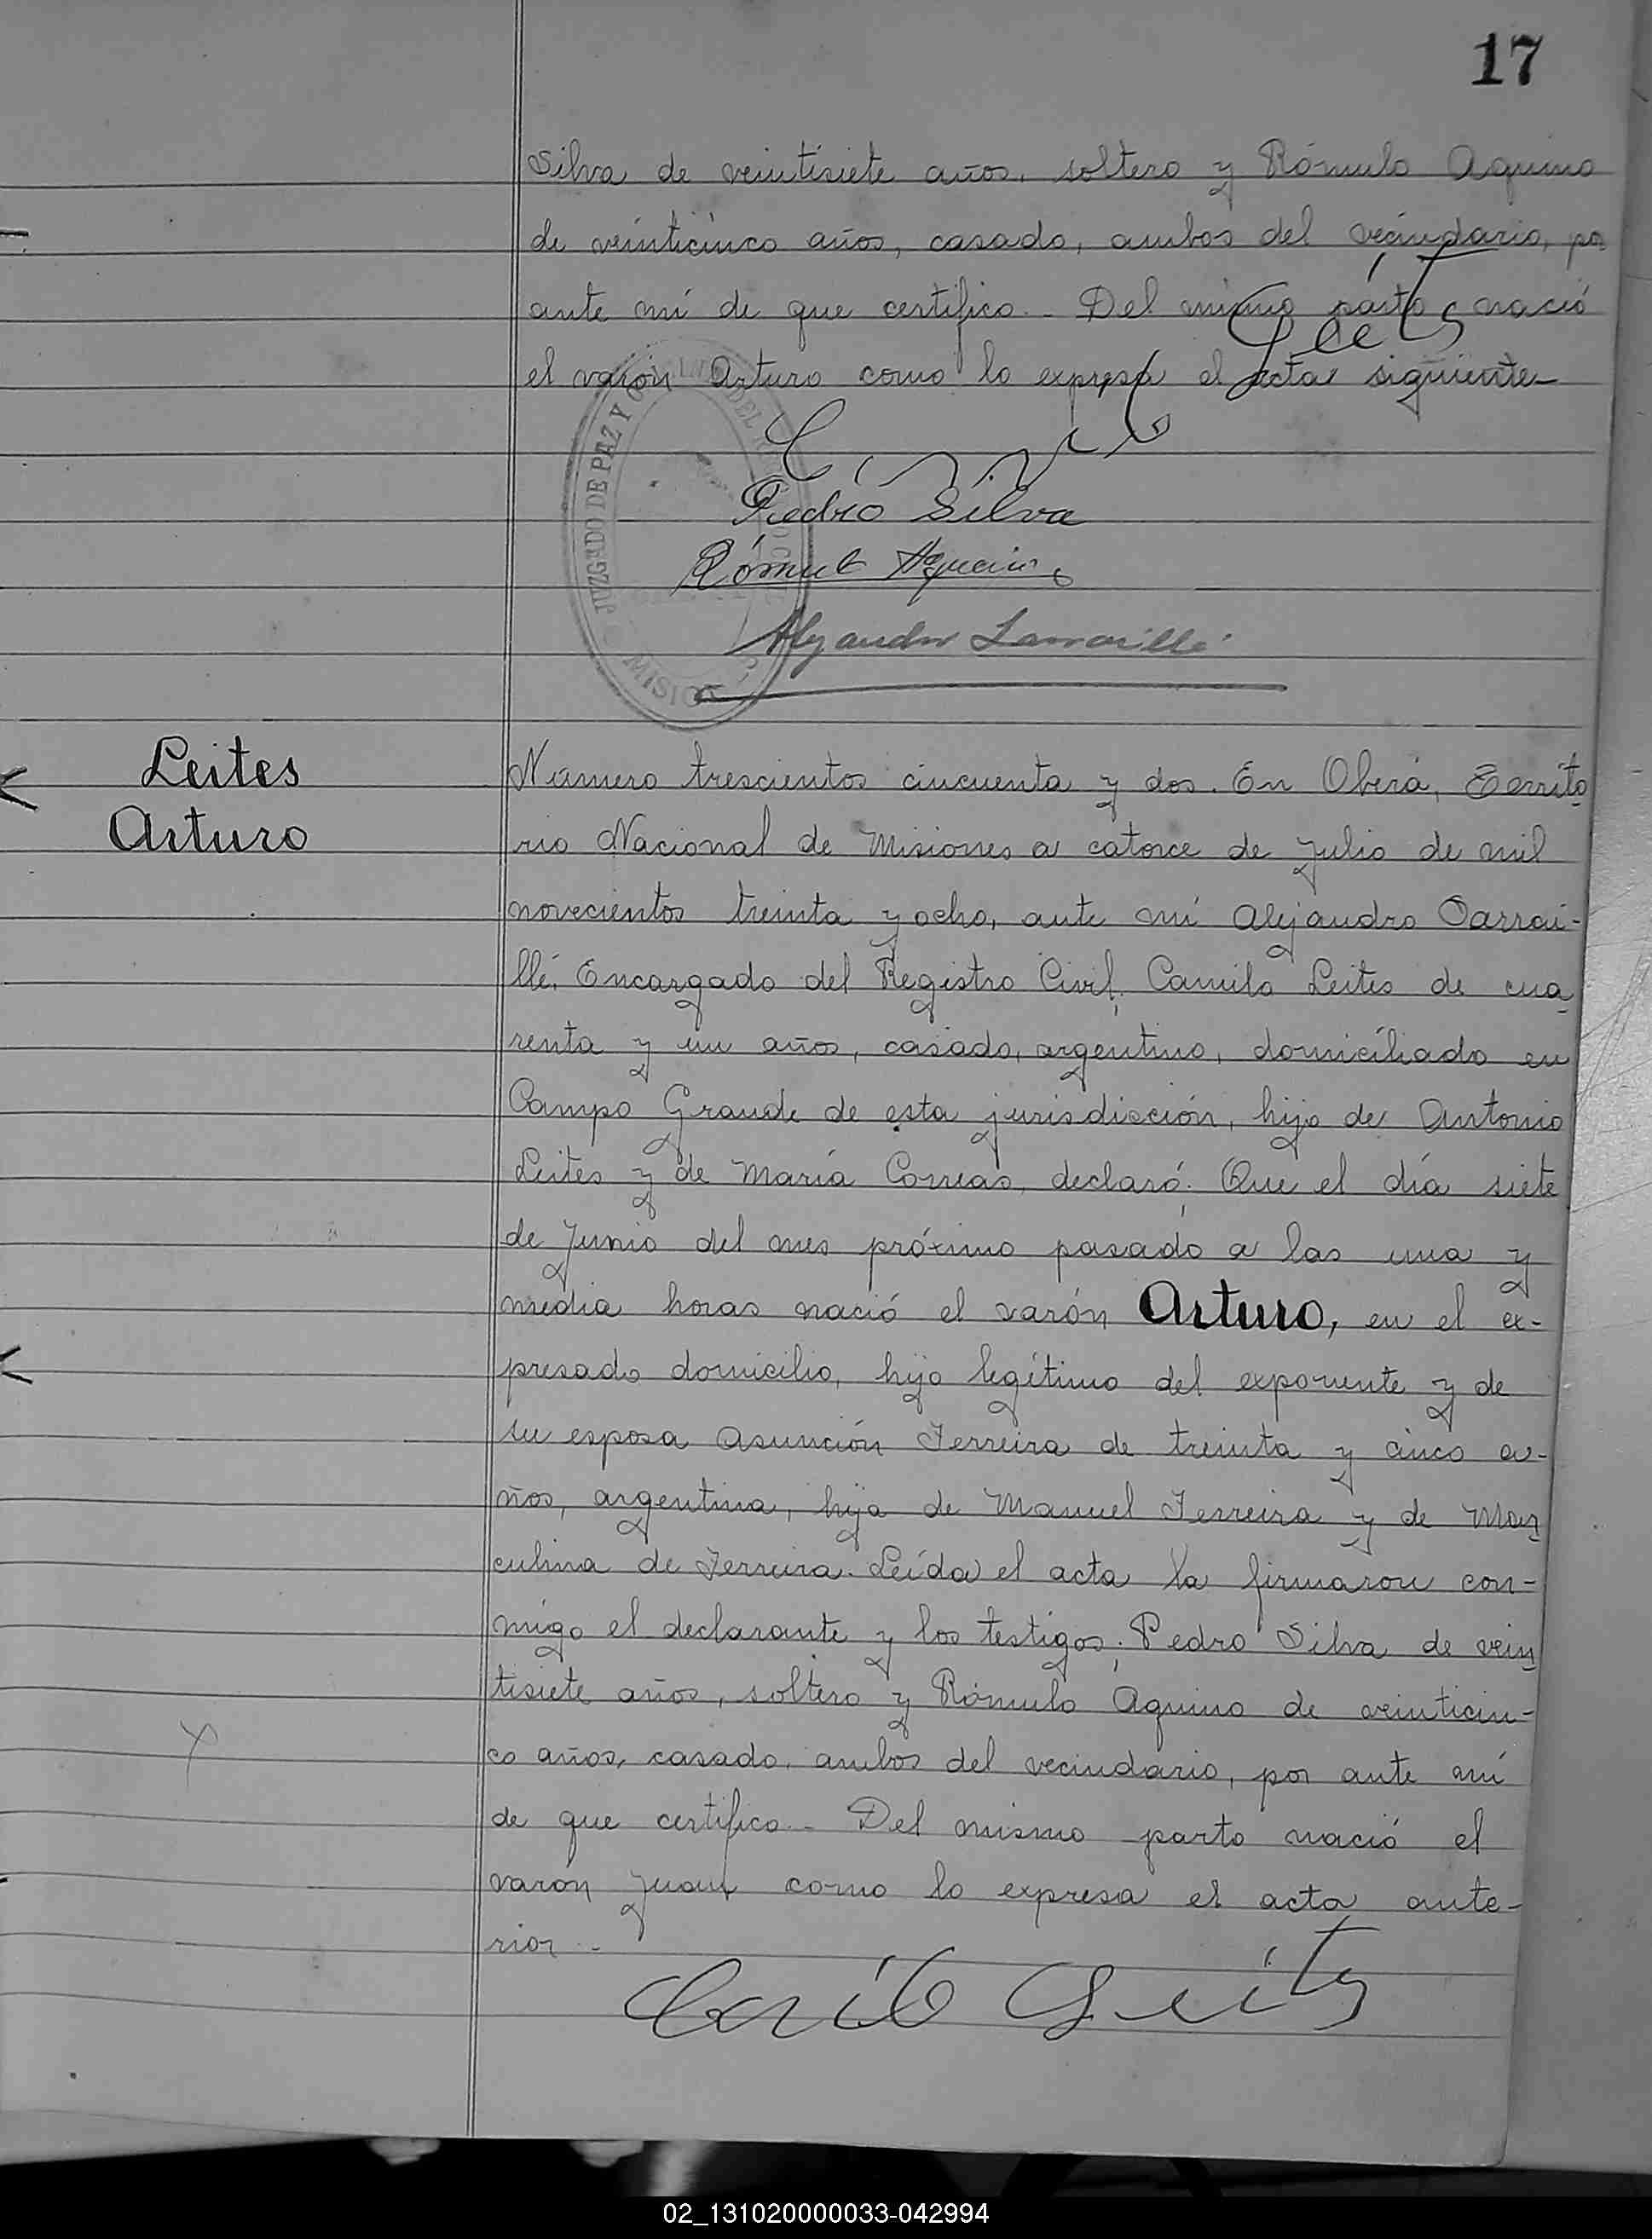 17
Silva de veintisiete años, soltero y Rómulo Aquino
de veinticinco años, casado, ambos del vecindario, por
ante mí de que certifico.- Del mismo parto nació
el varón Arturo como lo expresa el acta siguiente-
JUZGADO DE PAZ Y
MISIO
Pedro Silva
Rómulo Aquino
Alejandro Larraillé
Leites
Arturo
Número trescientos cincuenta y dos. En Oberá, Territo
rio Nacional de Misiones a catorce de Julio de mil
novecientos treinta y ocho, ante mí Alejandro Darrai-
llé, Encargado del Registro Civil, Camilo Leites de cua
renta y un años, casado, argentino, domiciliado en
Campo Grande de esta jurisdicción, hijo de Antonio
Leites y de María Correas, declaró: Que el día siete
de Junio del mes próximo pasado a las una y
media horas nació el varón Arturo, en el ex-
presado domicilio, hijo legítimo del exponente y de
su esposa Asunción Ferreira de treinta y cinco a-
ños, argentina, hija de Manuel Ferreira y de Mar
culina de Ferreira. Leída el acta la firmaron con-
migo el declarante y los testigos: Pedro Silva de vein
tisiete años, soltero y Rómulo Aquino de veinticin-
co años, casado, ambos del vecindario, por ante mí
de que certifico.- Del mismo parto nació el
varón Juan como lo expresa el acta ante-
rior.-
Camilo Leites
02_131020000033-042994